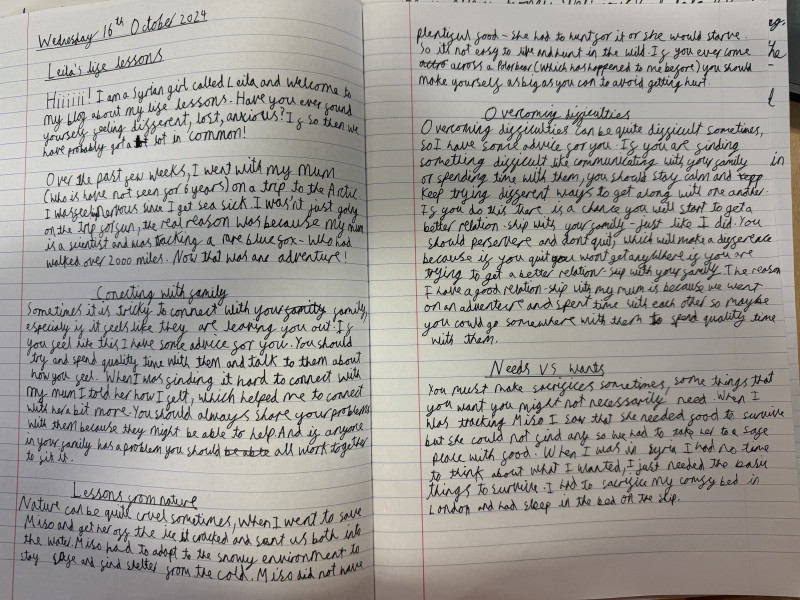 Wednesday 16th October 2024
Leila's life lessons
Hiiiiii! I am a Syrian girl called Leila and welcome to
my blog about my life lessons. Have you ever found
yourself feeling different, lost, anxious? If so then we
have probably got a lot in common!
Over the past few weeks, I went with my mum
(who is have not seen for 6 years) on a trip to the Arctic.
I was nervous since I get sea sick. I was'nt just going
on the trip for fun, the real reason was because my mum
is a scientist and was tracking a rare blue fox - who had
walked over 2000 miles. Now that was an adventure!
Conecting with family
Sometimes it is tricky to connect with your family family,
especialy if it feels like they are leaving you out. If
you feel like this I have some advice for you. You should
try and spend quality time with them and talk to them about
how you feel. When I was finding it hard to connect with
my mum I told her how I felt, which helped me to connect
with her a bit more. You should always share your problems
with them because they might be able to help. And if anyone
in your family has a problem you should be able all work together
to fix it.
Lessons from nature
Nature can be quite cruel sometimes, when I went to save
Miso and get her off the ice it cracked and sent us both into
the water. Miso had to adapt to the snowy environment to
stay safe and find shelter from the cold. Miso did not have
plentiful food - she had to hunt for it or she would starve.
So it's not easy to live and hunt in the wild. If you ever come
across a Polar bear (which has happened to me before) you should
make yourself as big as you can to avoid getting hurt.
Overcoming difficulties
Overcoming difficulties can be quite difficult sometimes,
so I have some advice for you. If you are finding
something difficult like communicating with your family
or spending time with them, you should stay calm and
keep trying different ways to get along with one another.
If you do this there is a chance you will start to get a
better relation-ship with your family - just like I did. You
should perservere and dont quit, which will make a difference
because if you quit you wont get anywhere if you are
trying to get a better relation-ship with your family. The reason
I have a good relation-ship with my mum is because we went
on an adventure and spent time with each other so maybe
you could go somewhere with them to spend quality time
with them.
Needs VS wants
You must make sacrifices sometimes, some things that
you want you might not necessarily need. When I
was tracking Miso I saw that she needed food to survive
but she could not find any so we had to take her to a safe
place with food. When I was in Syria I had no time
to think about what I wanted, I just needed the basic
things to survive. I had to sacrifice my comfy bed in
London and had sleep in the bed on the ship.
he
in